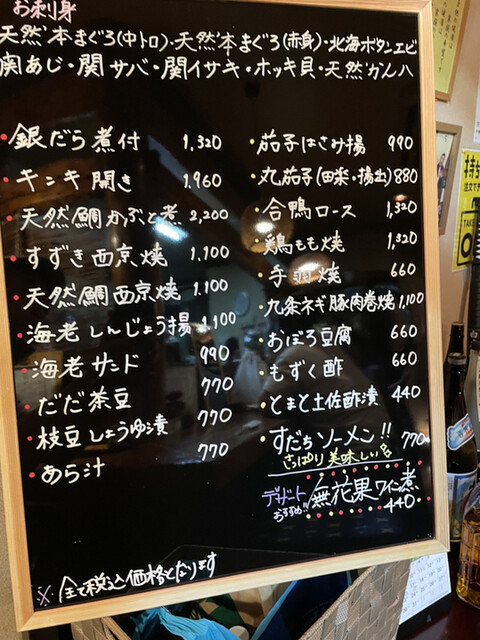 お刺身
天然本まぐろ(中トロ)・天然本まぐろ(赤身)・北海ボタンエビ
関あじ・関サバ・関イサキ・ホッキ貝・天然かんパ
・銀だら煮付 1,320
・キンキ開き 1.960
・天然鯛かぶと煮 2,200
・すずき西京焼 1,100
・天然鯛西京焼 1.100
・海老しんじょう揚 1,100
・海老サンド 990
・だだ茶豆 770
・枝豆しょうゆ漬 770
・あら汁 770
・茄子はさみ揚 990
・丸茄子(田楽・揚出) 880
・合鴨ロース 1,320
・鶏もも焼 1,320
・手羽焼 660
・九条ネギ豚肉巻焼 1,100
・おぼろ豆腐 660
・もずく酢 660
・とまと土佐酢漬 440
・すだちソーメン!! 770
さっぱり美味しい
デザート
おすすめ!!
無花果ワイン煮
440
※全て税込価格となります